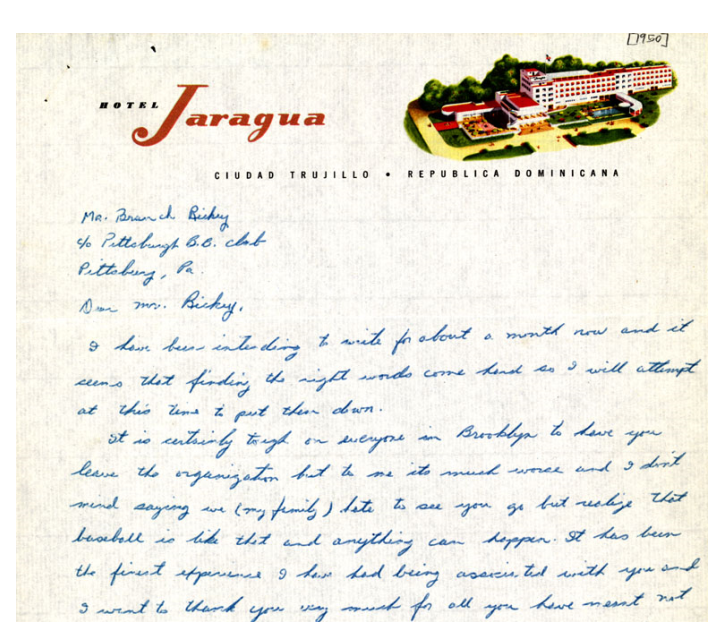 [1950]
HOTEL Jaragua
CIUDAD TRUJILLO • REPUBLICA DOMINICANA
Mr. Branch Rickey
c/o Pittsburgh B.B. club
Pittsburg, Pa.
Dear Mr. Rickey,
I have been intending to write for about a month now and it
seems that finding the right words come hard so I will attempt
at this time to put them down.
It is certainly tough on everyone in Brooklyn to have you
leave the organization but to me its much worse and I don't
mind saying we (my family) hate to see you go but realize that
baseball is like that and anything can happen. It has been
the finest experience I have had being associated with you and
I want to thank you very much for all you have meant not